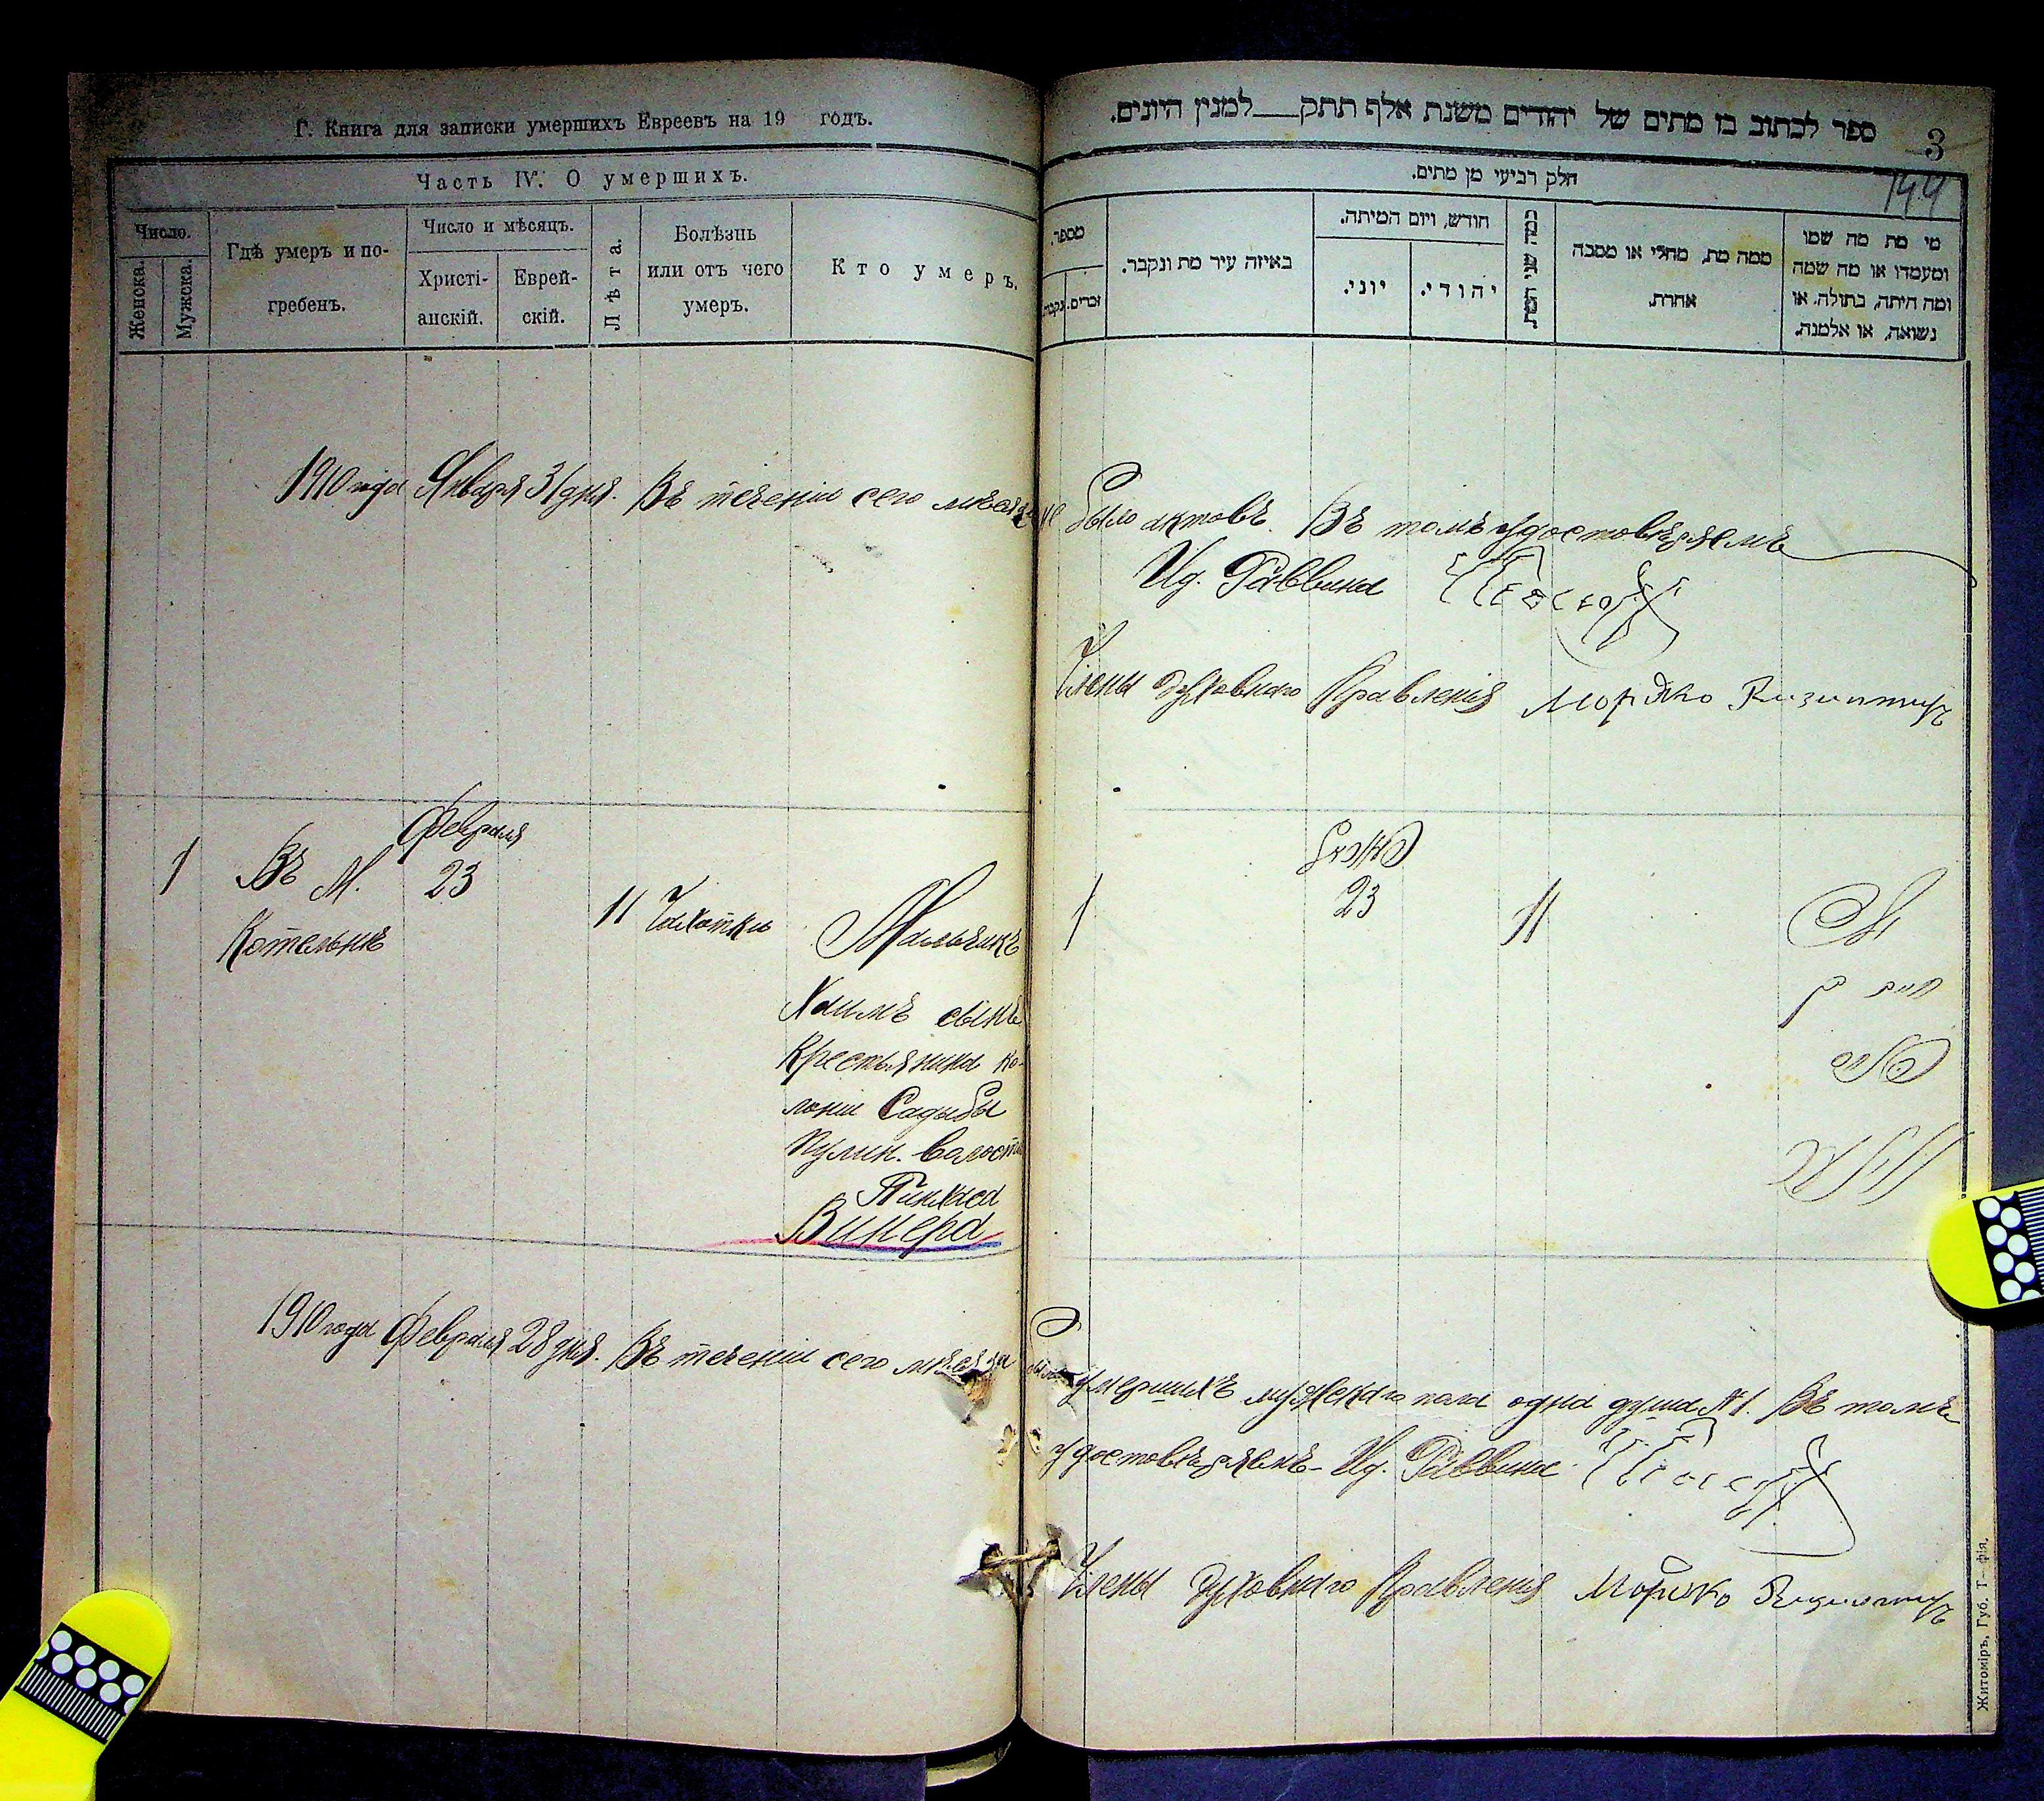 Г. Книга для записки умершихъ Евреевъ на 19 годъ.
Часть IV. О умершихъ.
Число.
Женска.
Мужска.
Гдѣ умеръ и по-
гребенъ.
Число и мѣсяцъ.
Христі-
анскій.
Еврей-
скій.
Лѣта.
Болѣзнь
или отъ чего
умеръ.
Кто умеръ.
ספר לכתוב בו מתים של יהודים משנת אלף תתק למנין היונים.
3
144
חלק רביעי מן מתים.
מספר.
זכרים.
נקבה.
באיזה עיר מת ונקבר.
חודש, ויום המיתה.
יוני.
יהודי.
כמה שני המת.
ממה מת, מחלי או מסבה
אחרת.
מי מת מה שמו
ומעמדו או מה שמה
ומה היתה, בתולה, או
נשואה, או אלמנה.
1910 года Января 31 дня. Въ теченіи сего мѣсяца не было актовъ. Въ томъ удостовѣряемъ
Ид. Раввина
Члены Духовнаго Правленія Мордко
Февраля
1 Въ М. 23
Котельнѣ
11 Чахотки
Мальчикъ
Хаимъ сынъ
Крестьянина ко-
лоніи Садыбы
Пулин. волости
Пинхаса
Винера
1
23
11
חיים בן
1910 года Февраля 28 дня. Въ теченіи сего мѣсяца было умершихъ мужскаго пола одна душа №1. Въ томъ
удостовѣряемъ - Ид. Раввина
Члены Духовнаго Правленія Мордко
Житоміръ, Губ. Т—фія.